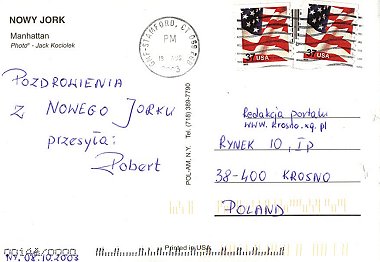 NOWY JORK
Manhattan
Photo* - Jack Kociolek
STAMFORD, CT 069
PM
37 USA
37 USA
POZDROWIENIA
Z NOWEGO JORKU
przesyła:
Robert
POL-AM, N.Y. Tel. (718) 389-7790
Redakcja portalu
www.krosno.xg.pl
RYNEK 10, I P
38-400 KROSNO
POLAND
Printed in USA
NY. 08.10.2003